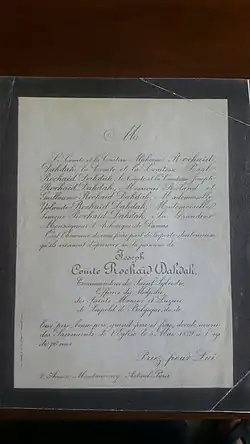 M
Le Comte et la Comtesse Alphonse Rochaid
Dahdah, le Comte et la Comtesse Paul
Rochaid Dahdah, le Comte et la Comtesse
Rochaid Dahdah, Monsieur et
Rochaid Dahdah, Mademoiselle
Rochaid Dahdah, Mademoiselle
Rochaid Dahdah, Sa Grandeur
Monseigneur l'Archevêque de Damas
Ont l'honneur de vous faire part de la perte douloureuse
qu'ils viennent d'éprouver en la personne de
Joseph
Comte Rochaid Dahdah,
Commandeur de Saint Sylvestre,
Officier du Medjidié,
des Saints Maurice et Lazare
de Léopold de Belgique, &
père, beau-père, grand-père et frère, décédé muni
des Sacrements de l'Église le 5 Mai 1889 à l'âge
de ans
Priez pour Lui